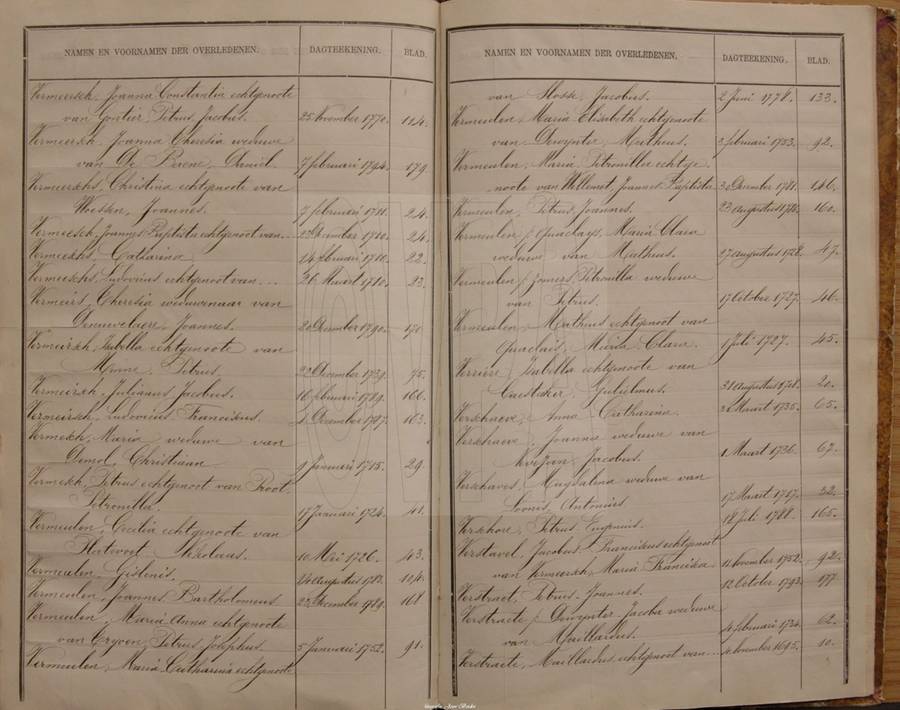 NAMEN EN VOORNAMEN DER OVERLEDENEN. DAGTEEKENING. BLAD.
Vermeersch, Joanna Constantia echtgenoote
van Gontier Petrus Jacobus. 25 November 1770. 124.
Vermeersch, Joanna Theresia weduwe
van De Daniël 7 februari 1794. 179
Vermeerschs, Christina echtgenoote van
Joannes. 7 februari 1711. 24.
Vermeesch, Joannes Baptista echtgenoot van... 22 December 1710. 24.
Vermeerschs, Catharina 14 februari 1710. 22.
Vermeerschs, Ludovicus echtgenoot van... 26 Maart 1710. 23.
Vermeers, Theresia weduwenaar van
Joannes. 20 December 1790. 170
Vermeirsch, Isabella echtgenoote van
Petrus. 22 December 1739. 75.
Vermeirsch, Julianus Jacobus. 16 februari 1789. 166.
Vermeirsch, Ludovicus Franciskus. 4 December 1787. 163.
Vermesch, Maria weduwe van
Demol, Christiaan 9 Januari 1715. 29.
Vermesch, Petrus echtgenoot van Proot
Petronilla. 19 Januari 1724. 41.
Vermeulen, Cecilia echtgenoote van
Nikolaas. 10 Mei 1726. 43.
Vermeulen, Gislenis. 24 augustus 104.
Vermeulen, Joannes Bartholomeus 22 December 1789. 168.
Vermeulen, Maria Anna echtgenoote
van Cryon, Petrus Josephus. 5 Januari 1752. 91.
Vermeulen, Maria Catharina echtgenoote
NAMEN EN VOORNAMEN DER OVERLEDENEN. DAGTEEKENING. BLAD.
van Jacobus. 2 Juni 1778. 133.
Vermeulen, Maria Elisabeth echtgenoote
van Dewynter, Matheus. februari 1753. 92.
Vermeulen, Maria Petronilla echtge-
noote van Willemot, Joannes Baptista 30 December 1781. 146.
Vermeulen, Petrus Joannes. 23 augustus 160.
Vermeulen / Quaclays, Maria Clara
weduwe van Matheus. 27 augustus 1728. 47.
Vermeulen / Petronilla weduwe
van Petrus. 17 October 1727. 46.
Vermeulen, Matheus echtgenoot van
Quaclais, Maria Clara. 1 Juli 1727. 45.
Verriere, Isabella echtgenoote van
Caestaker, Gulielmus. 31 augustus 1708. 20.
Verschaeve, Anna Catharina. Maart 1735. 65.
Verschaeve, Joannes weduwe van
Jacobus. 1 Maart 1736. 67.
Verschaeves, Magdalena weduwe van
Loonis, Antonius 17 Maart 1717. 32.
Verschore, Petrus Eugenius. 18 Juli 1788. 165.
Verstavel, Jacobus Franciskus echtgenoot
van Vermeersch, Maria Franciska. 11 November 1752. 92.
Verstraet, Petrus Joannes. 12 October 1793. 177
Verstraete / Dewynter, Jacoba weduwe
van Maillardus. 4 februari 1734. 62.
Verstraete, Maillardus echtgenoot van... 4 November 1695. 10.